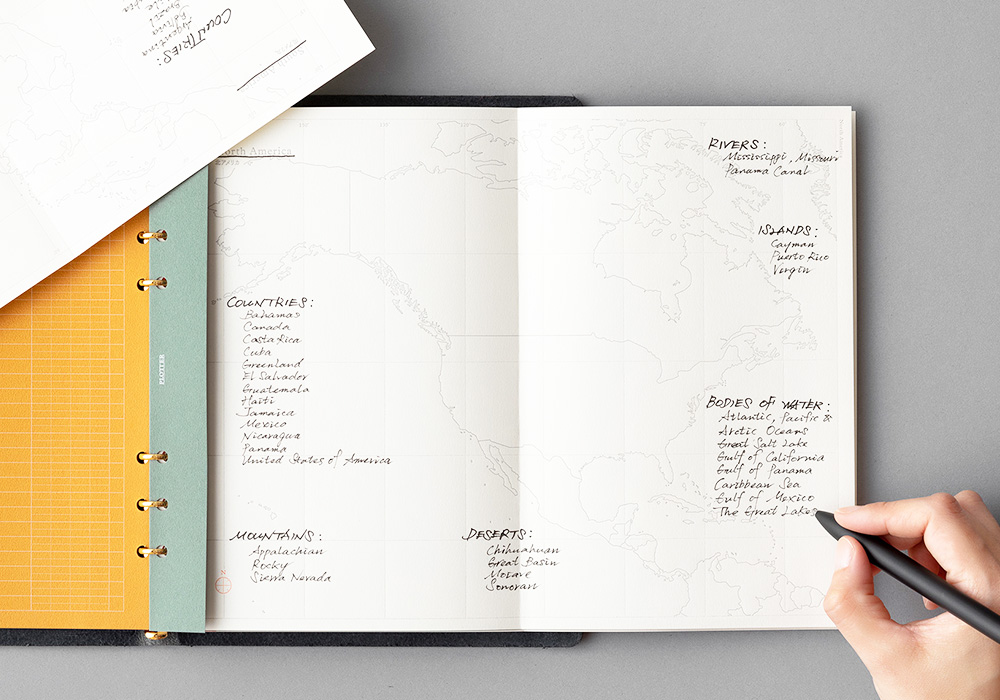 COUNTRIES:
Argentina
Bolivia
Brazil
North America
COUNTRIES:
Bahamas
Canada
Costa Rica
Cuba
Greenland
El Salvador
Guatemala
Haiti
Jamaica
Mexico
Nicaragua
Panama
United States of America
MOUNTAINS:
Appalachian
Rocky
Sierra Nevada
DESERTS:
Chihuahuan
Great Basin
Mojave
Sonoran
RIVERS:
Mississippi, Missouri
Panama Canal
ISLANDS:
Cayman
Puerto Rico
Virgin
BODIES OF WATER:
Atlantic, Pacific &
Arctic Oceans
Great Salt Lake
Gulf of California
Gulf of Panama
Caribbean Sea
Gulf of Mexico
The Great Lakes
PLOTTER